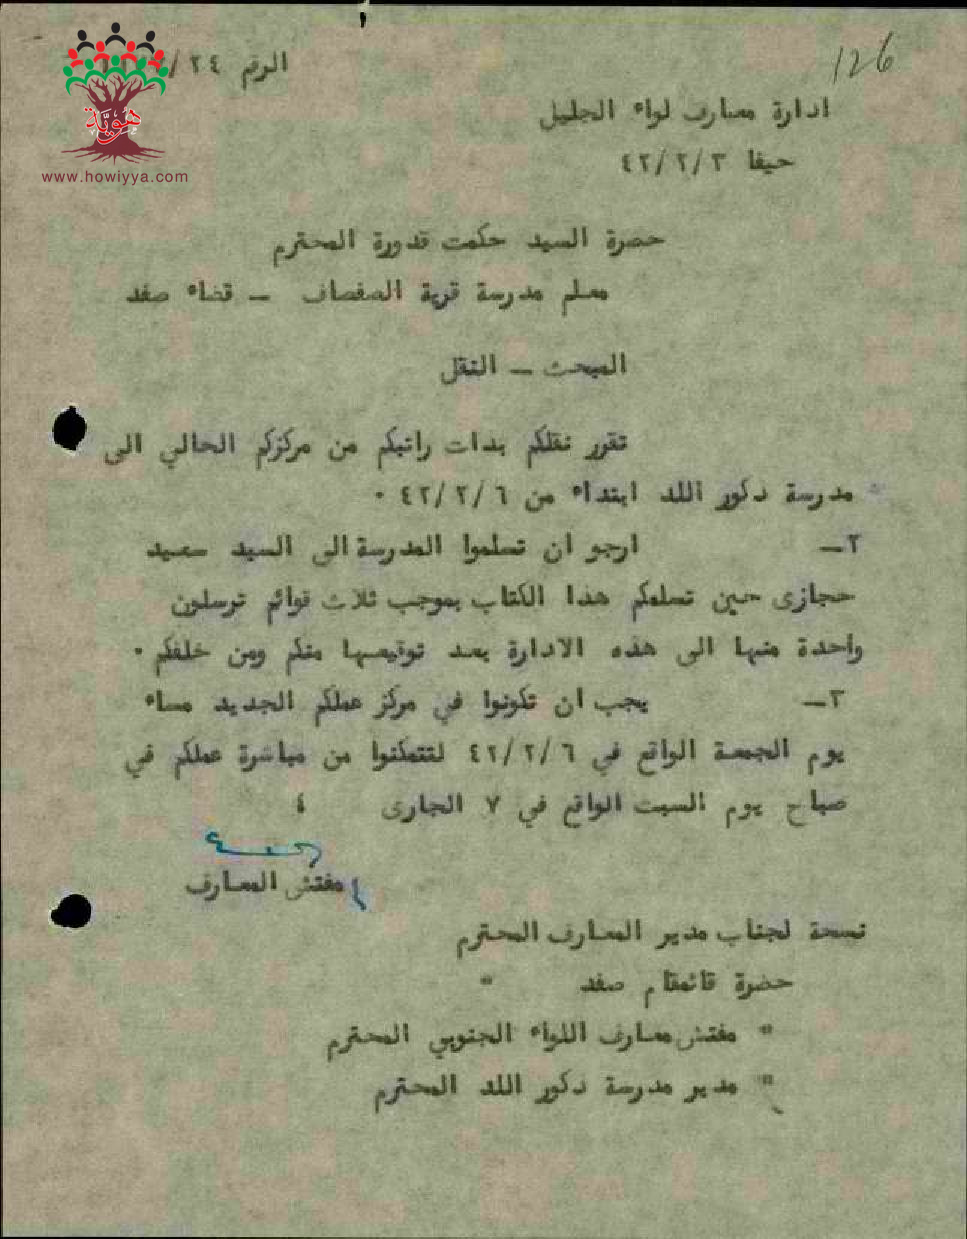 126
الرقم ٢٤/
هُوِيَّة
www.howiyya.com
ادارة معارف لواء الجليل
حيفا ٤٢/٢/٣
حضرة السيد حكمت قدورة المحترم
معلم مدرسة قرية الصفصاف – قضاء صفد
المبحث – النقل
تقرر نقلكم بذات راتبكم من مركزكم الحالي الى
مدرسة ذكور اللد ابتداء من ٤٢/٢/٦ ٠
٢– ارجو ان تسلموا المدرسة الى السيد سعيد
حجازى حين تسلمكم هذا الكتاب بموجب ثلاث قوائم ترسلون
واحدة منها الى هذه الادارة بعد توقيعها منكم ومن خلفكم ٠
٣– يجب ان تكونوا في مركز عملكم الجديد مساء
يوم الجمعة الواقع في ٤٢/٢/٦ لتتمكنوا من مباشرة عملكم في
صباح يوم السبت الواقع في ٧ الجارى ٤
مفتش المعارف
نسخة لجناب مدير المعارف المحترم
حضرة قائمقام صفد "
" مفتش معارف اللواء الجنوبي المحترم
" مدير مدرسة ذكور اللد المحترم